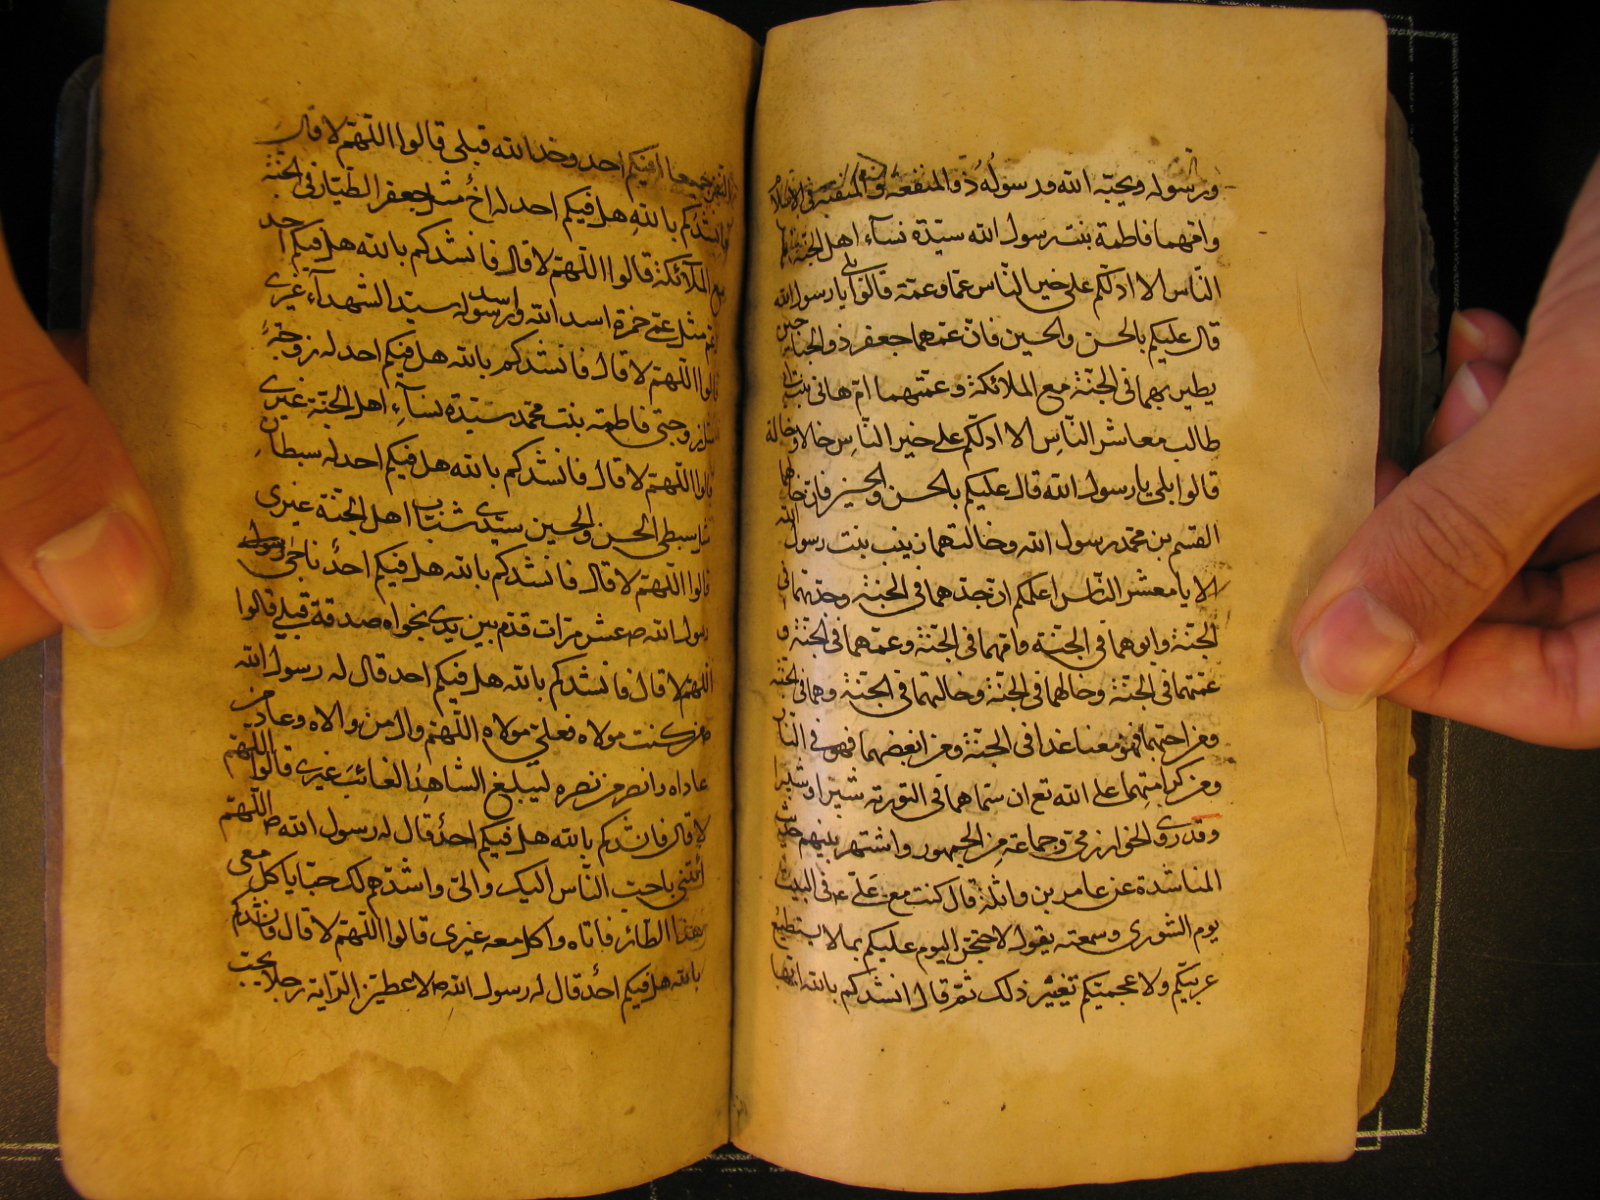 ورسوله ويحبه الله ورسوله ذو المنفعة والمنقبة في الاسلام
وامهما فاطمة بنت رسول الله سيدة نسآء اهل الجنة
النّاس الا ادلّكم على خير النّاس عمّا وعمّة قالوا بلى يا رسول الله
قال عليكم بالحسن والحسين فانّ عمّهما جعفر ذو الجناحين
يطير بهما في الجنّة مع الملائكة وعمّتهما امّ هانى بنت ابى
طالب معاشر النّاس الا ادلّكم على خير النّاس خالا وخالة
قالوا بلى يا رسول الله قال عليكم بالحسن والحسين فان خالهما
القسم بن محمد رسول الله وخالتهما زينب بنت رسول الله
الا يا معشر النّاس اعلمكم ان جدّهما في الجنّة وجدتهما في
الجنّة وابوهما في الجنّة وامّهما في الجنّة وعمّهما في الجنّة و
عمّتهما في الجنّة وخالهما في الجنّة وخالتهما في الجنّة وهما في الجنّة
ومن احبهما فهو معنا غدا في الجنّة ومن ابغضهما فهو في النّار
ومن كرامتهما على الله تع ان سمّاهما في التورية شبّرا وشبيرا
وقد روى الخوارزمى وجماعة من الجمهور واشتهر بينهم حديث
المناشدة عن عامر بن واثلة قال كنت مع على ع في البيت
يوم الشورى وسمعته يقول لاحتجن اليوم عليكم بما لا يستطيع
عربيّكم ولا عجميّكم تغيّر ذلك ثمّ قال انشدكم بالله ايّها
النفر جميعا افيكم احد وحّد الله قبلى قالوا اللّهمّ لا قال
فانشدكم بالله هل فيكم احد له اخ مثل جعفر الطيّار في الجنّة
مع الملآئكة قالوا اللّهمّ لا قال فانشدكم بالله هل فيكم احد
عم مثل عمّى حمزة اسد الله واسد رسوله سيّد الشهدآء غيرى
قالوا اللّهمّ لا قال فانشدكم بالله هل فيكم احد له زوجة
مثل زوجتى فاطمة بنت محمّد سيّدة نسآء اهل الجنّة غيرى
قالوا اللّهمّ لا قال فانشدكم بالله هل فيكم احد له سبطان
مثل سبطى الحسن والحسين سيّدى شباب اهل الجنّة غيرى
قالوا اللّهمّ لا قال فانشدكم بالله هل فيكم احد ناجى
رسول الله ص عشر مرّات قدّم بين يدى نجواه صدقة قبلى قالوا
اللّهمّ لا قال فانشدكم بالله هل فيكم احد قال له رسول الله
ص من كنت مولاه فعلىّ مولاه اللّهمّ وال من والاه وعاد من
عاداه وانصر من نصره ليبلغ الشاهد الغائب غيرى قالوا اللّهمّ
لا قال فانشدكم بالله هل فيكم احد قال له رسول الله ص اللّهمّ
ائتنى باحبّ النّاس اليك والىّ واشدّهم لك حبّا يأكل معى
هذا الطائر فأتاه واكل معه غيرى قالوا اللّهمّ لا قال فانشدكم
بالله هل فيكم احد قال له رسول الله ص لاعطينّ الراية رجلا يحبّ